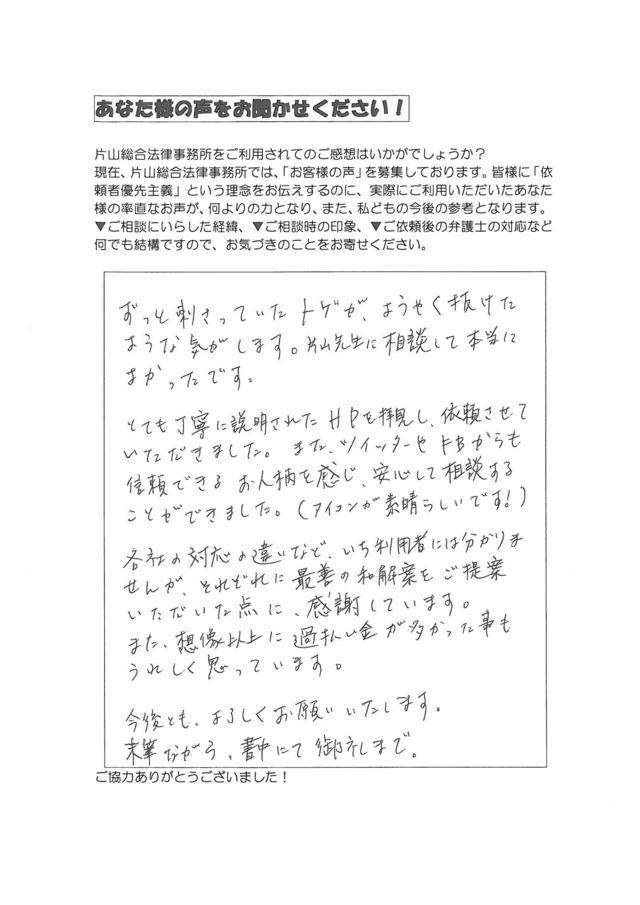 あなた様の声をお聞かせください！
片山総合法律事務所をご利用されてのご感想はいかがでしょうか？
現在、片山総合法律事務所では、「お客様の声」を募集しております。皆様に「依
頼者優先主義」という理念をお伝えするのに、実際にご利用いただいたあなた
様の率直なお声が、何よりの力となり、また、私どもの今後の参考となります。
▼ご相談にいらした経緯、▼ご相談時の印象、▼ご依頼後の弁護士の対応など
何でも結構ですので、お気づきのことをお寄せください。
ずっと刺さっていたトゲが、ようやく抜けた
ような気がします。片山先生に相談して本当に
よかったです。
とても丁寧に説明されたHPを拝見し、依頼させて
いただきました。また、ツイッターやFBからも
信頼できるお人柄を感じ、安心して相談する
ことができました。（アイコンが素晴らしいです！）
各社の対応の違いなど、いち利用者には分かりま
せんが、それぞれに最善の和解案をご提案
いただいた点に、感謝しています。
また、想像以上に過払い金が多かった事も
うれしく思っています。
今後とも、よろしくお願いいたします。
末筆ながら、書中にて御礼まで。
ご協力ありがとうございました！